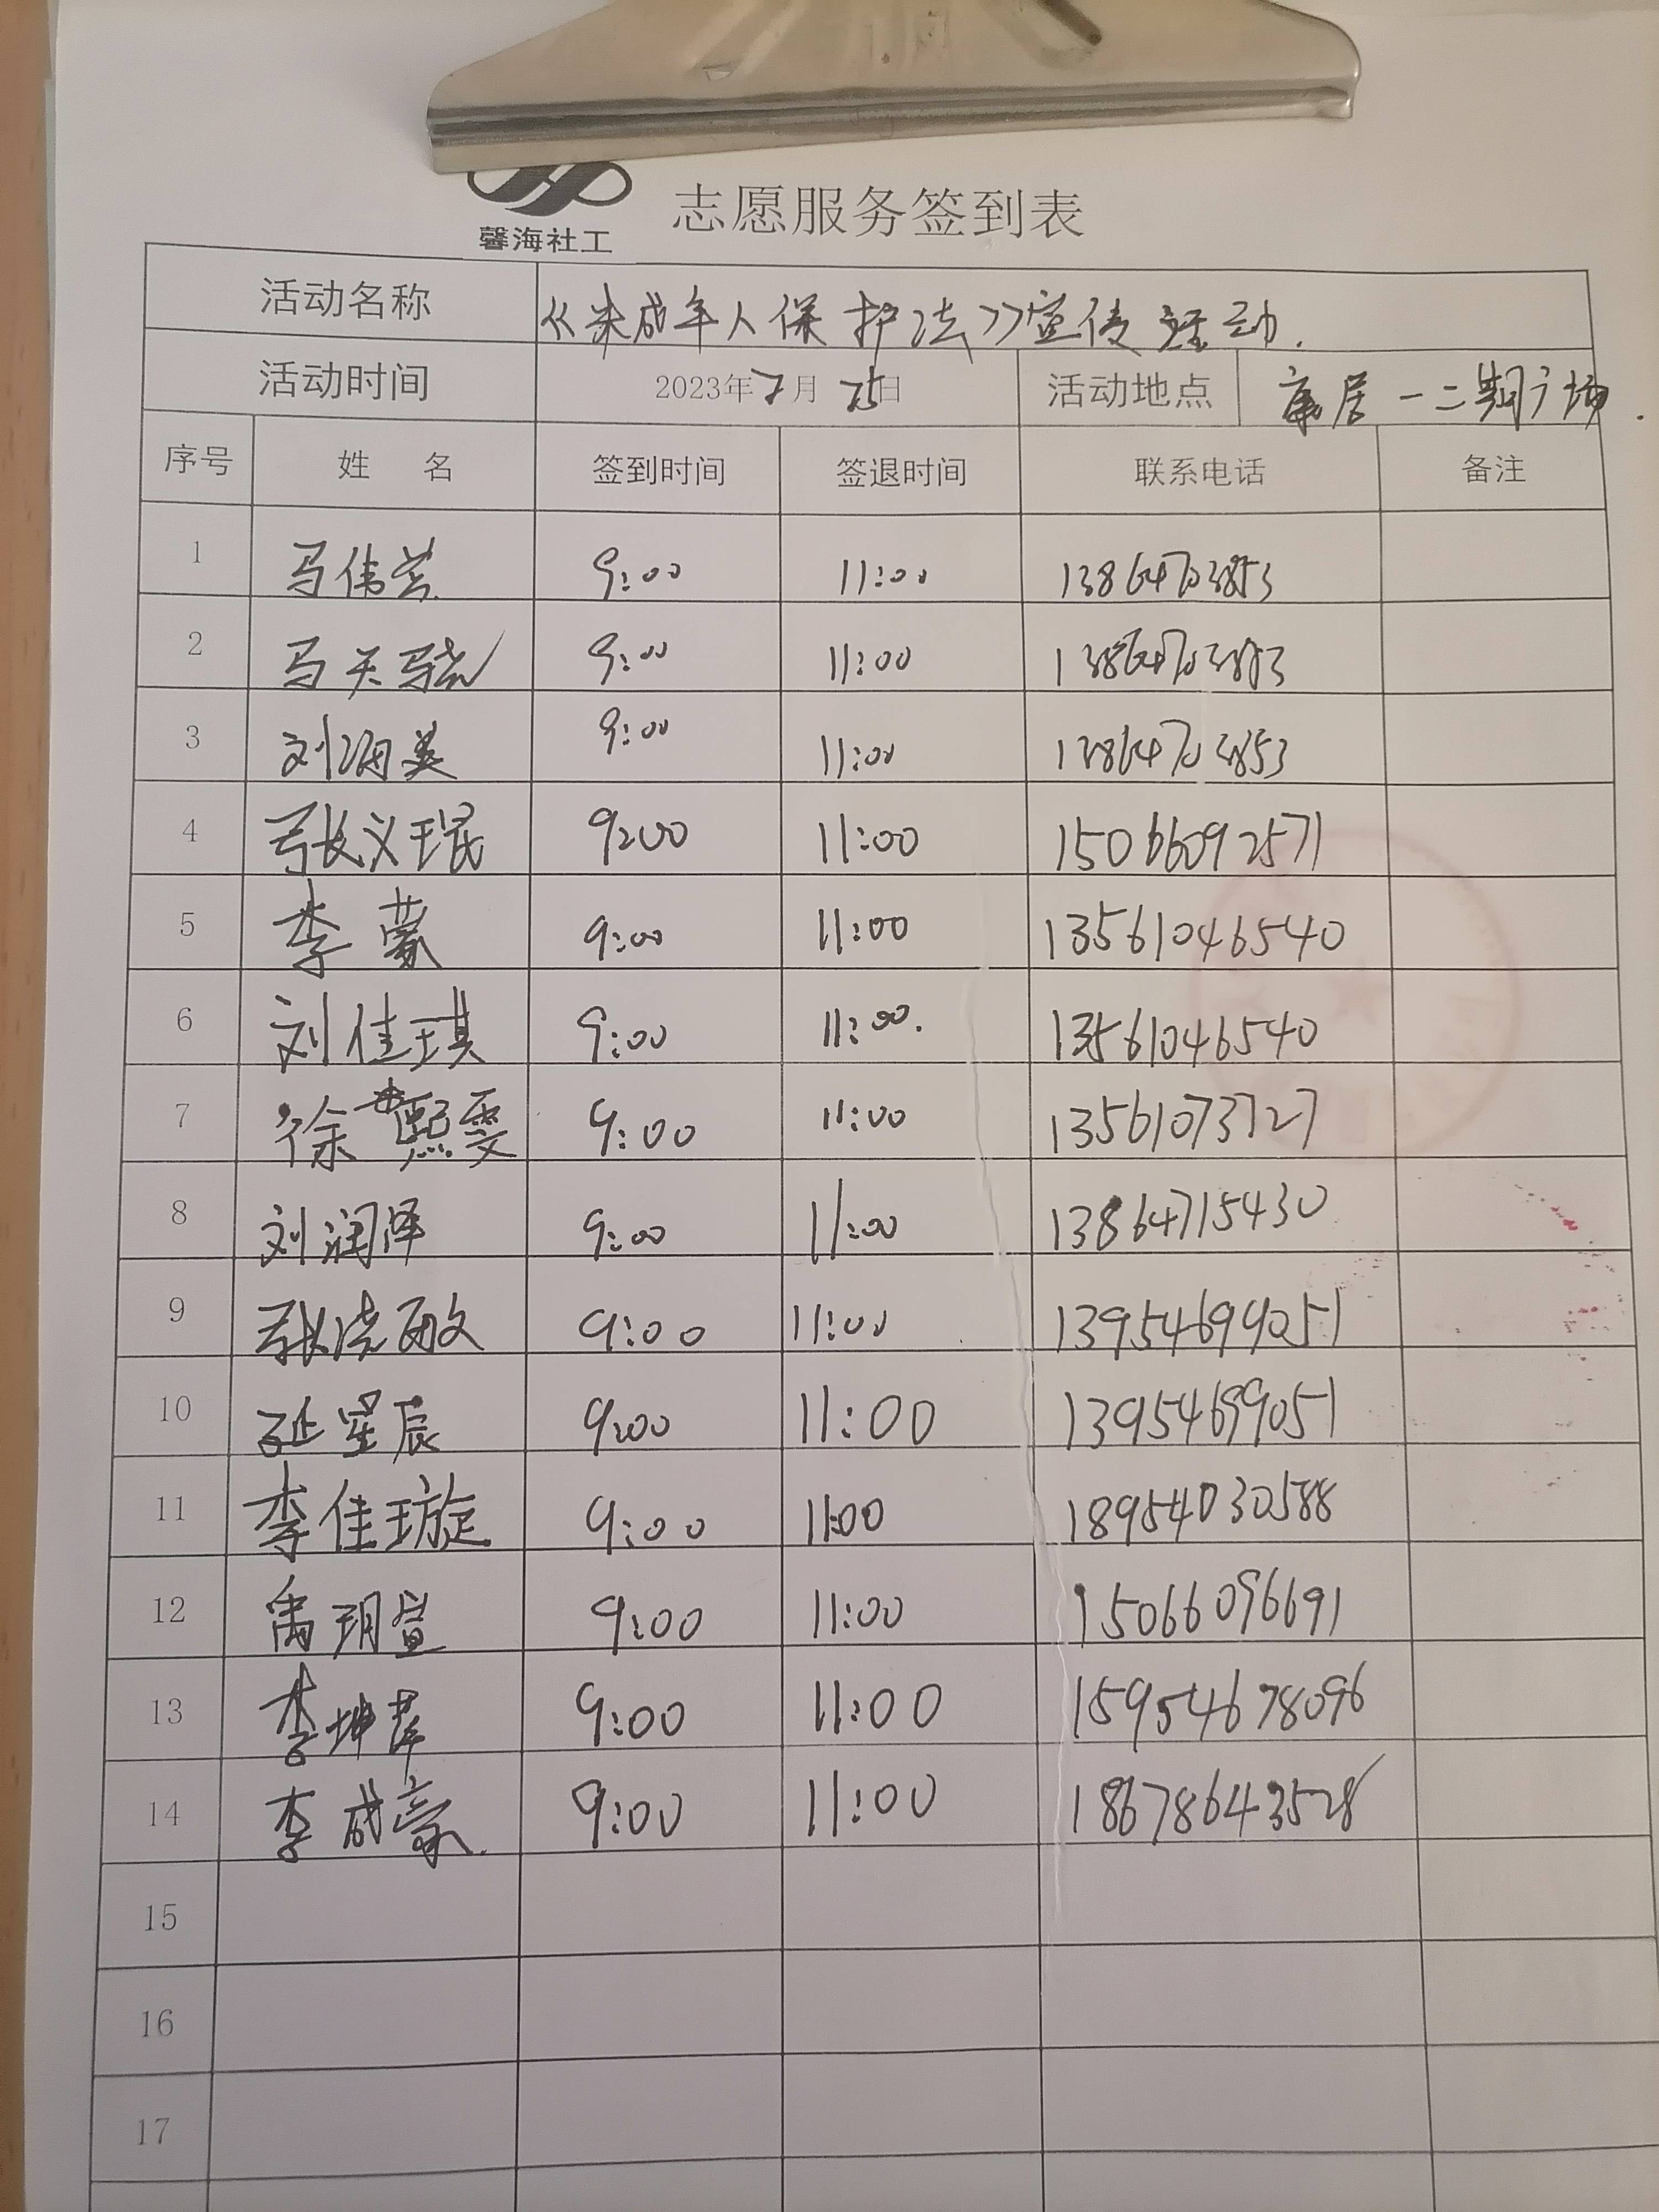 馨海社工
志愿服务签到表
活动名称 《未成年人保护法》宣传活动.
活动时间 2023年7月25日 活动地点 康居一二期广场.
序号 姓 名 签到时间 签退时间 联系电话 备注
1 马伟芸 9:00 11:00 13864703853
2 马天骁 9:00 11:00 13864703853
3 刘海英 9:00 11:00 13864703853
4 张义琨 9:00 11:00 15066092571
5 李蒙 9:00 11:00 13561046540
6 刘佳琪 9:00 11:00. 13561046540
7 徐熙雯 9:00 11:00 13561073727
8 刘润泽 9:00 11:00 13864715430
9 张浩 9:00 11:00 13954699051
10 延星辰 9:00 11:00 13954699051
11 李佳璇 9:00 11:00 18954030588
12 禹玥萱 9:00 11:00 15066096691
13 李坤 9:00 11:00 15954678096
14 李成豪. 9:00 11:00 18678643528
15
16
17